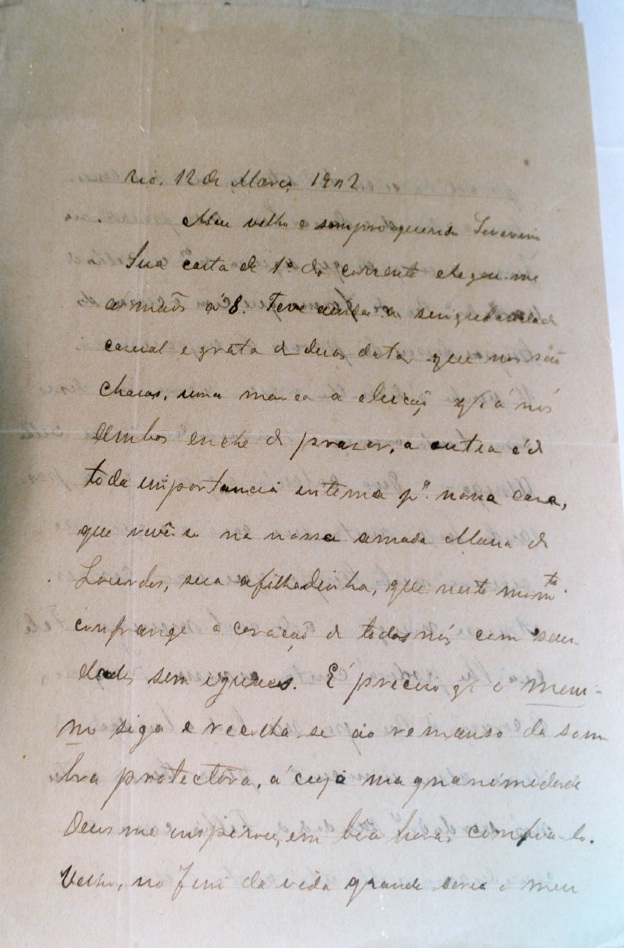 Rio, 12 de Março 19
Meu velho e sempre querido Severino
Sua carta de 1º do corrente chegou-me
ás mãos a 8. Teve a
casual e grata de duas datas que nos são
charas, uma marca a eleição q. a nós
ambos enche de prazer, a outra é de
toda importancia interna pª nossa casa,
que revê-se na nossa amada Maria de
Lourdes, sua afilhadinha, que neste momte
confrange o coração de todos nós com sau
dades sem iguaes. É preciso q. o meni-
no siga e recolha-se ao remanso da som
bra protectora, á cuja magnanimidade
Deus me inspirou, em boa hora, confia-lo.
Velho, no fim da vida grande seria o meu